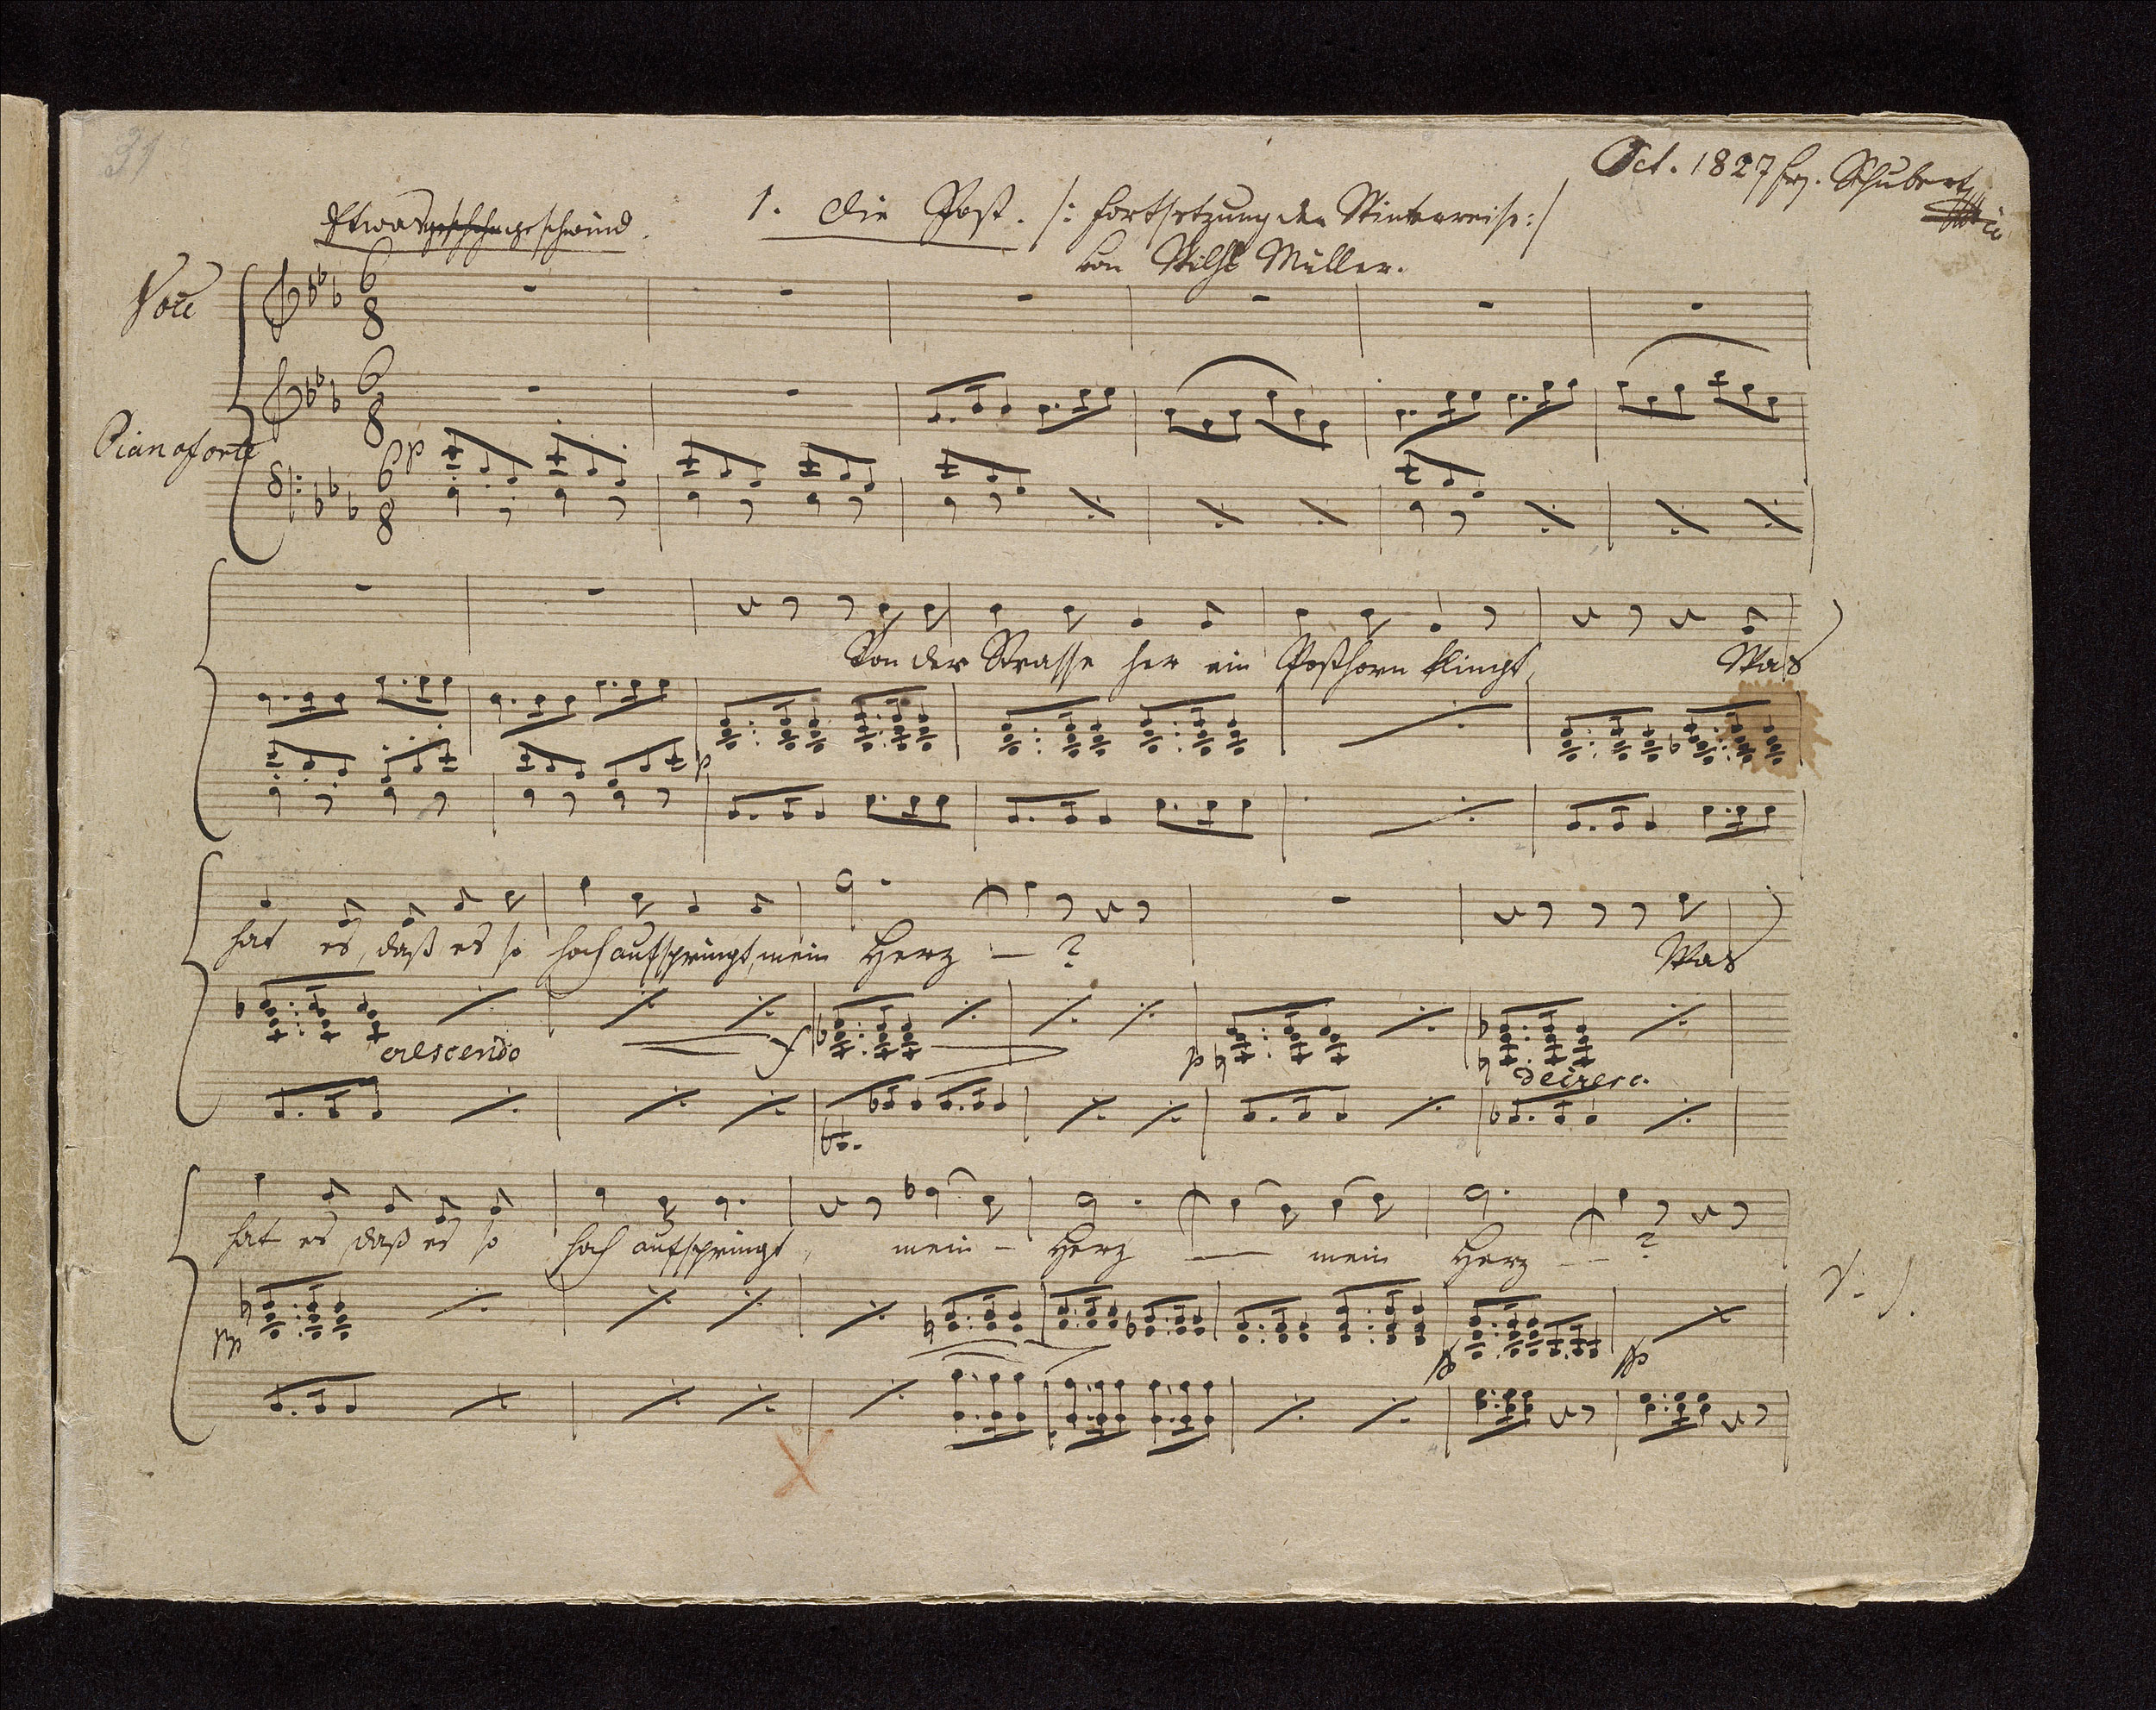 31
Oct. 1827 Frz. Schubert
Etwas geschwind.
1. Die Post. /: Fortsetzung der Winterreise :/
von Wilh. Müller.
Voce
Pianoforte
6 8
6 8
6 8
p
Von der Strasse her ein Posthorn klingt, Was
p
hat es, daß es so hoch aufspringt, mein Herz — ? Was
crescendo f p decresc.
hat es daß es so hoch aufspringt, mein – Herz — mein Herz — ?
V. S.
pp p pp